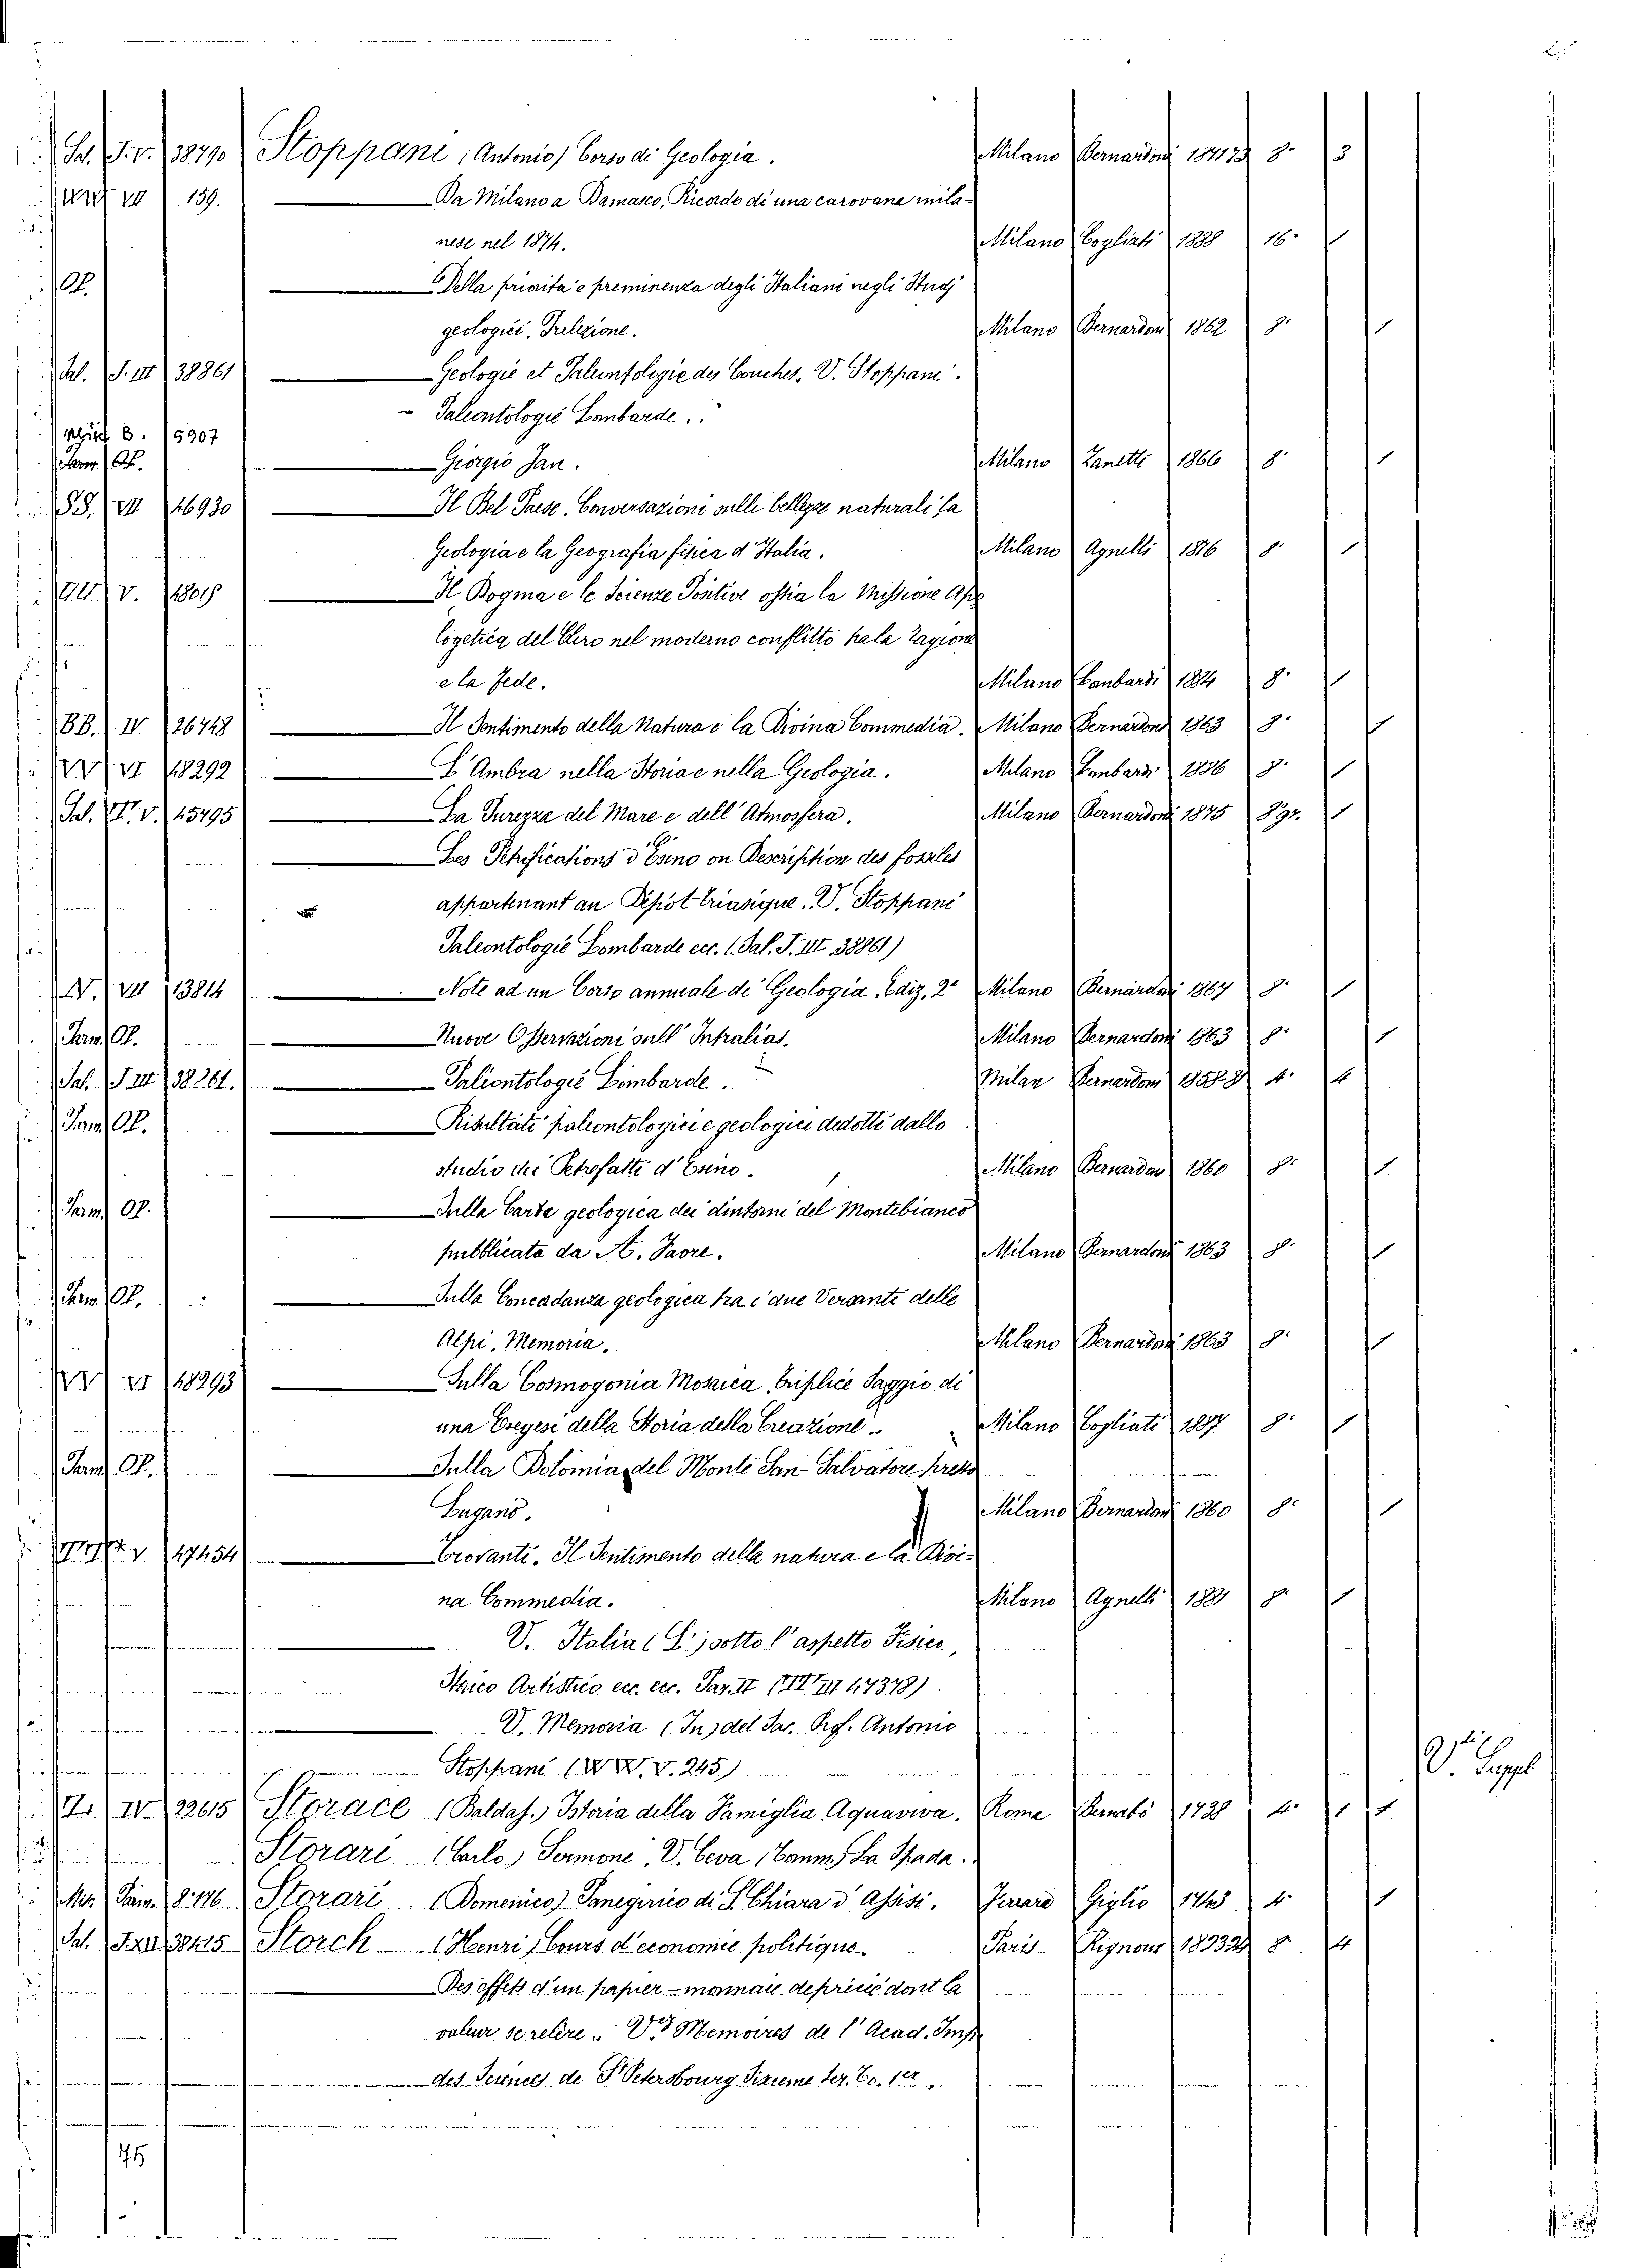 Sal. J. V. 38790 Stoppani (Antonio) Corso di Geologia. Milano Bernardoni 1871 73 8° 3
VII 159. Da Milano a Damasco, Ricordo di una carovana mila-
nese nel 1874. Milano Cogliati 1888 16° 1
OP. Della priorita' e preminenza degli Italiani negli Studj
geologici. Prelezione. Milano Bernardoni 1862 8° 1
Sal. J. III 38861 Geologie et Paleontologie des Couches. V. Stoppani.
- Paleontologie Lombarde.
B. 5907
Giorgio Jan. Milano Zanetti 1866 8° 1
SS. VII 46930 Il Bel Paese. Conversazioni sulle bellezze naturali la
Geologia e la Geografia fisica d'Italia. Milano Agnelli 1876 8° 1
V. Il Dogma e le Scienze Positive ossia la Missione Apo
logetica del Clero nel moderno conflitto tra la ragione
e la fede. Milano Lombardi 1884 8° 1
BB. IV 26748 Il Sentimento della Natura e la Divina Commedia. Milano Bernardoni 1863 8° 1
VI 48292 L'Ambra nella Storia e nella Geologia. Milano Lombardi 1886 8° 1
Sal. V. 45495 La Purezza del Mare e dell'Atmosfera. Milano Bernardoni 1875 8° gr. 1
Les Petrifications d'Esino ou Description des fossiles
appartenant au Depôt triasique. V. Stoppani
Paleontologie Lombarde ecc. (Sal. J. III 38861)
N. VII 13814 Note ad un Corso annuale di Geologia. Ediz. 2ª Milano Bernardoni 1867 8° 1
Jam. OP. Nuove Osservazioni sull'Infralias. Milano Bernardoni 1863 8° 1
Sal. J III 38861. Paleontologie Lombarde. Milan Bernardoni 1858 4° 4
Jam. OP. Risultati paleontologici e geologici dedotti dallo
studio dei Petrefatti d'Esino. Milano Bernardoni 1860 8° 1
Jam. OP. Sulla Carta geologica dei dintorni del Montebianco
pubblicata da A. Favre. Milano Bernardoni 1863 8° 1
Jam. OP. Sulla Concordanza geologica tra i due Versanti delle
Alpi. Memoria. Milano Bernardoni 1863 8° 1
VI 48293 Sulla Cosmogonia Mosaica. Triplice Saggio di
una Esegesi della Storia della Creazione. Milano Cogliati 1887 8° 1
Jam. OP. Sulla Dolomia del Monte San-Salvatore presso
Lugano. Milano Bernardoni 1860 8° 1
V 47454 Trovanti. Il Sentimento della natura e la Divi-
na Commedia. Milano Agnelli 1881 8° 1
V. Italia (L') sotto l'aspetto Fisico,
Storico Artistico ecc. ecc. Par. II 47378)
V. Memoria (In) del Sac. Prof. Antonio
Stoppani ( V. 245)
V. Suppl
IV 22615 Storace (Baldas.) Istoria della Famiglia Aquaviva. Roma Bernabò 1738 4° 1
Storari (Carlo) Sermone. V. Ceva (Tomm.) La Spada.
Mis. Jam. 8° 176 Storari (Domenico) Panegirico di S. Chiara d'Assisi. Ferrara Giglio 4° 1
Sal. 38415 Storch (Henri) Cours d'economie politique. Paris Rignoux 1823 24 8° 4
Des effets d'un papier-monnaie deprecié dont la
valeur se relère. V. Memoires de l'Acad. Imp
des Sciences de St Petersbourg Sixieme Ser. To. 1er.
75